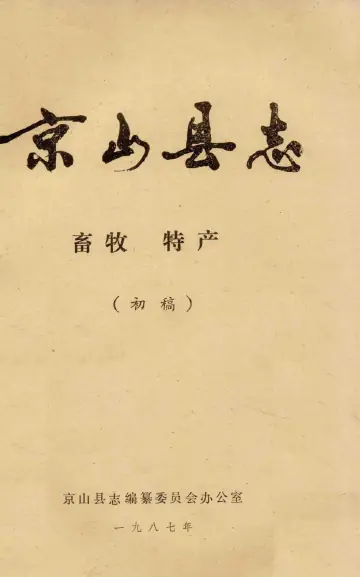 京山县志
畜牧 特产
(初稿)
京山县志编纂委员会办公室
一九八七年